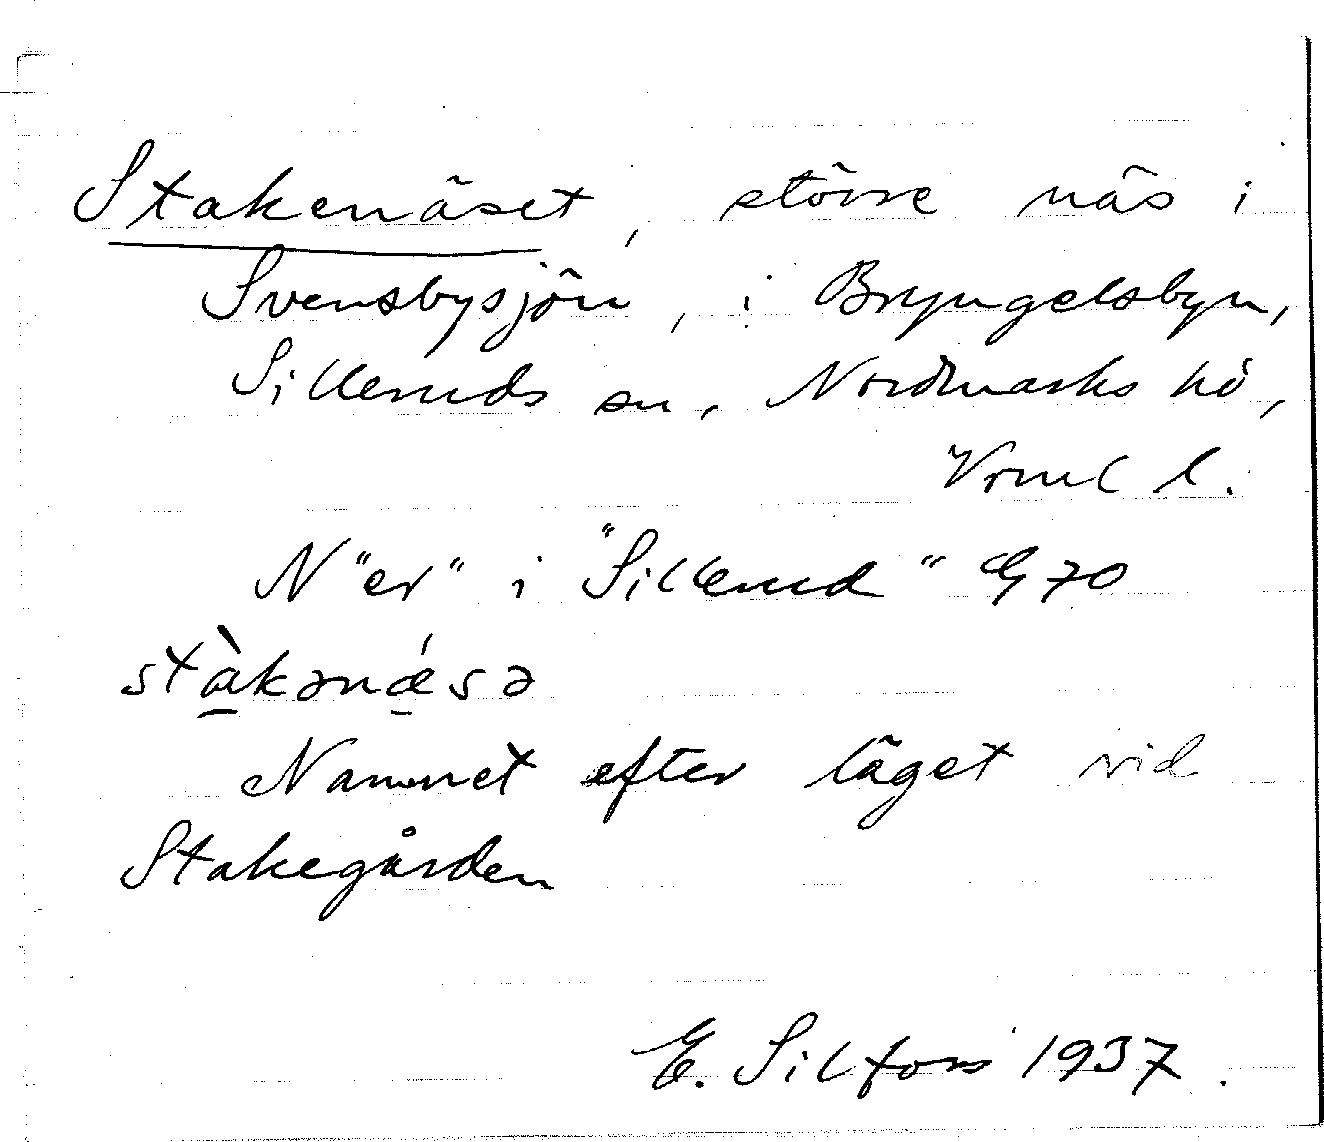 Stakenäset, större näs i
Svensbysjön, i Bryngelsbyn,
Silleruds sn, Nordmarks hd,
Vrml l.
N "er" i "Sillerud" G 70
stàkənǽsə
Namnet efter läget vid
Stakegården
E. Silfors 1937.